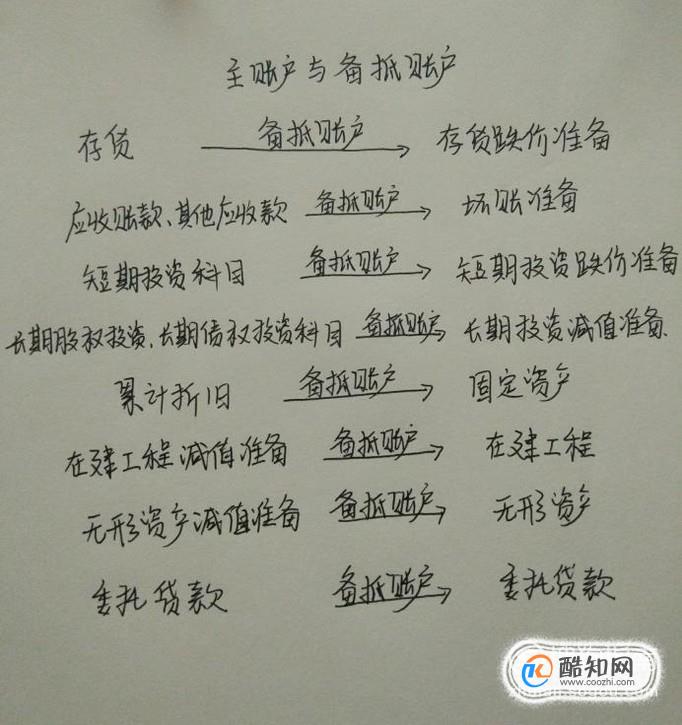 主账户与备抵账户
存货 备抵账户 存货跌价准备
应收账款、其他应收款 备抵账户 坏账准备
短期投资科目 备抵账户 短期投资跌价准备
长期股权投资、长期债权投资科目 备抵账户 长期投资减值准备
累计折旧 备抵账户 固定资产
在建工程减值准备 备抵账户 在建工程
无形资产减值准备 备抵账户 无形资产
委托贷款 备抵账户 委托贷款
酷知网
www.coozhi.com